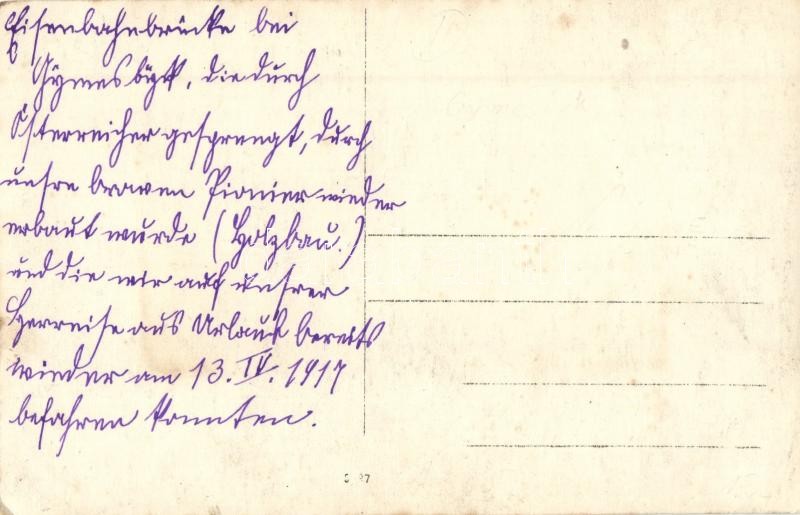 Eisenbahnbrücke bei
Gÿmesbükk, die durch
Österreicher gesprengt, durch
unsre braven Pionier wieder
erbaut wurde (Holzbau.)
und die wir auf unsrer
Herreise aus Urlaub bereits
wieder am 13. IV. 1917
befahren konnten.